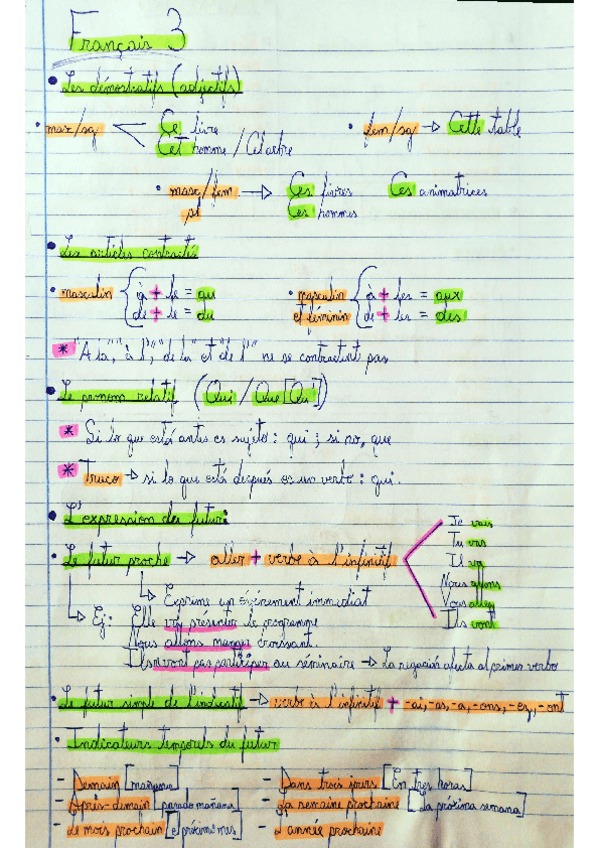 Français 3
• Les démostratifs (adjectifs)
• masc/sg Ce livre • fem/sg → Cette table
Cet homme / Cet arbre
• masc/fem → Ces livres Ces animatrices
pl Ces hommes
• Les articles contractés
• masculin à + le = au • masculin à + les = aux
de + le = du et féminin de + les = des
* "A la", "à l'", "de la" et "de l'" ne se contractent pas
• Le pronom relatif (Qui / Que [Qu'])
* Si lo que está antes es sujeto: qui; si no, que
* Truco → si lo que está después es un verbo: qui.
• L'expression du futur:
• Le futur proche → aller + verbe à l'infinitif
Je vais
Tu vas
Il va
Nous allons
Vous allez
Ils vont
→ Exprime un événement immédiat
→ Ej: Elle va présenter le programme
Nous allons manger croissant.
Ils ne vont pas participer au séminaire → La negación afecta al primer verbo
• Le futur simple de l'indicatif → verbe à l'infinitif + -ai, -as, -a, -ons, -ez, -ont
• Indicateurs temporels du futur
- Demain [mañana] - Dans trois jours [En tres horas]
- Après-demain [pasado mañana] - La semaine prochaine [La próxima semana]
- Le mois prochain [el próximo mes] - L'année prochaine